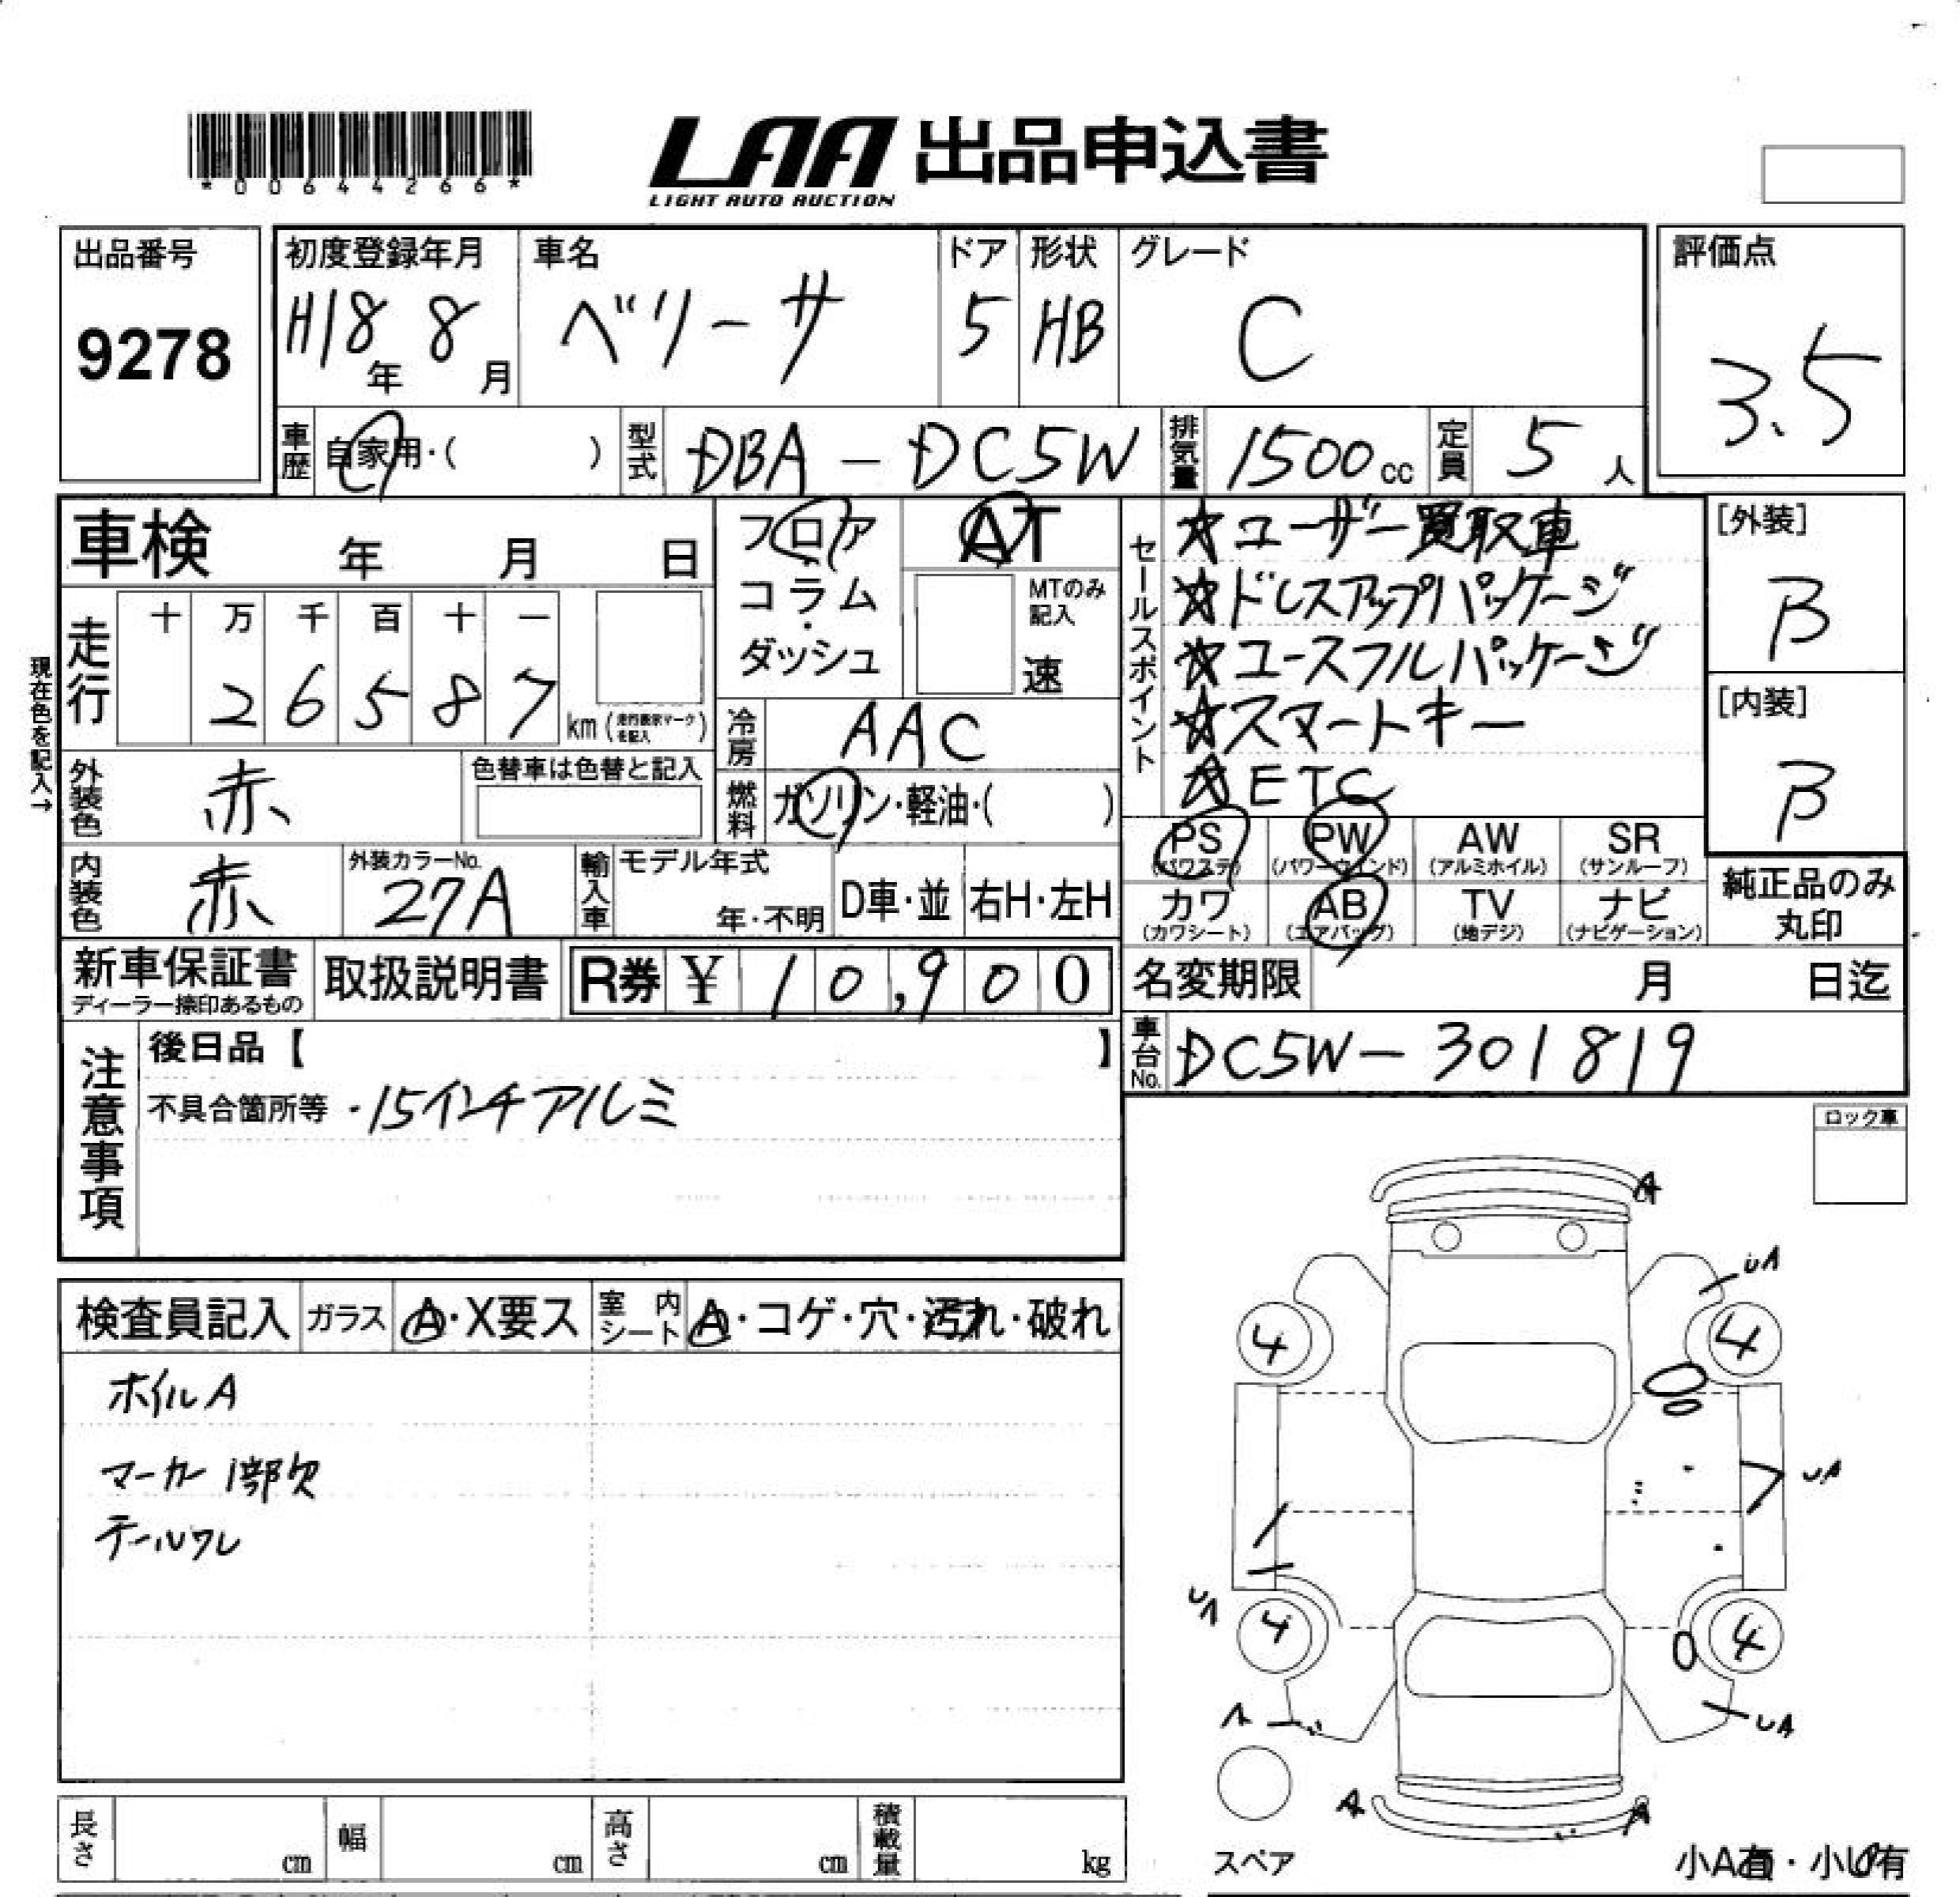 *00644266*
LAA 出品申込書
LIGHT AUTO AUCTION
出品番号
9278
初度登録年月
H18年 8月
車名
ベリーサ
ドア
5
形状
HB
グレード
C
評価点
3.5
車歴
自家用・( )
型式
DBA - DC5W
排気量
1500cc
定員
5人
車検 年 月 日
現在色を記入→
走行
十 万 千 百 十 一
2 6 5 8 7
km (走行表示マークを記入)
フロア
コラム
・
ダッシュ
AT
MTのみ
記入
速
冷房
AAC
燃料
ガソリン・軽油・( )
外装色
赤
色替車は色替と記入
内装色
赤
外装カラーNo.
27A
輸入車
モデル年式
年・不明
D車・並
右H・左H
セールスポイント
☆ユーザー買取車
☆ドレスアップパッケージ
☆ユースフルパッケージ
☆スマートキー
☆ETC
[外装]
B
[内装]
B
PS
(パワステ)
PW
(パワーウィンド)
AW
(アルミホイル)
SR
(サンルーフ)
カワ
(カワシート)
AB
(エアバッグ)
TV
(地デジ)
ナビ
(ナビゲーション)
純正品のみ
丸印
新車保証書
ディーラー捺印あるもの
取扱説明書
R券 ¥ 10,900
名変期限 月 日迄
車台No.
DC5W-301819
注意事項
後日品【 】
不具合箇所等 ・15インチアルミ
ロック車
検査員記入
ガラス
A・X要ス
室内シート
A・コゲ・穴・汚れ・破れ
ホイルA
マーカー1部欠
テールワレ
A
UA
4
4
UA
UA
4
4
UA
A
A
スペア
小A有・小U有
長さ cm
幅 cm
高さ cm
積載量 kg